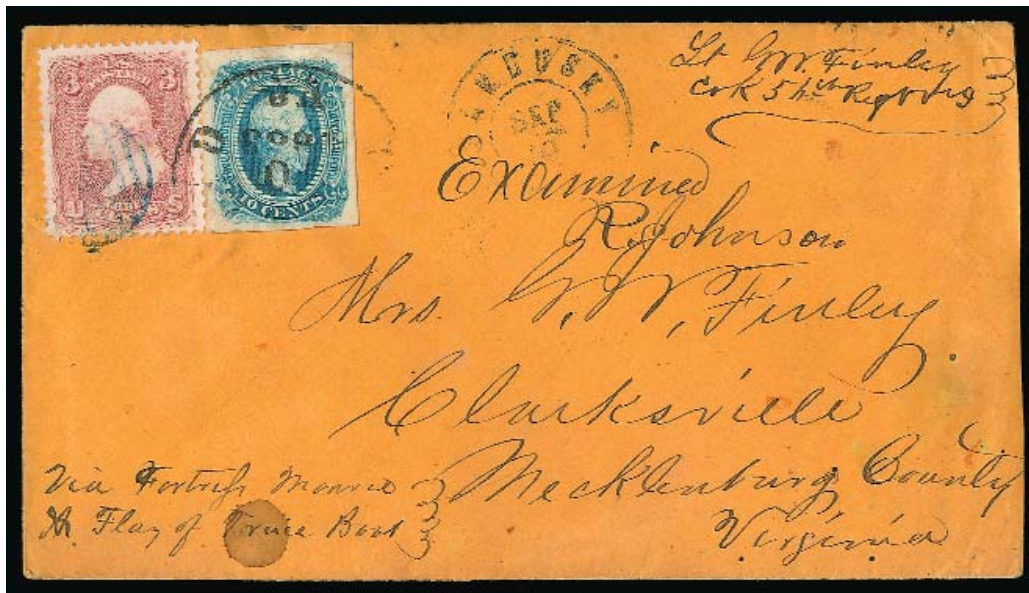 3 3
U S
TEN CENTS
SANDUSKY
SEP
Lt G.W. Finley
Co K 56th Reg Va
Examined
R. Johnson
Mrs. G. W. Finley
Clarksville
Mecklenburg County
Virginia
Via Fortress Monroe
& Flag of Truce Boat